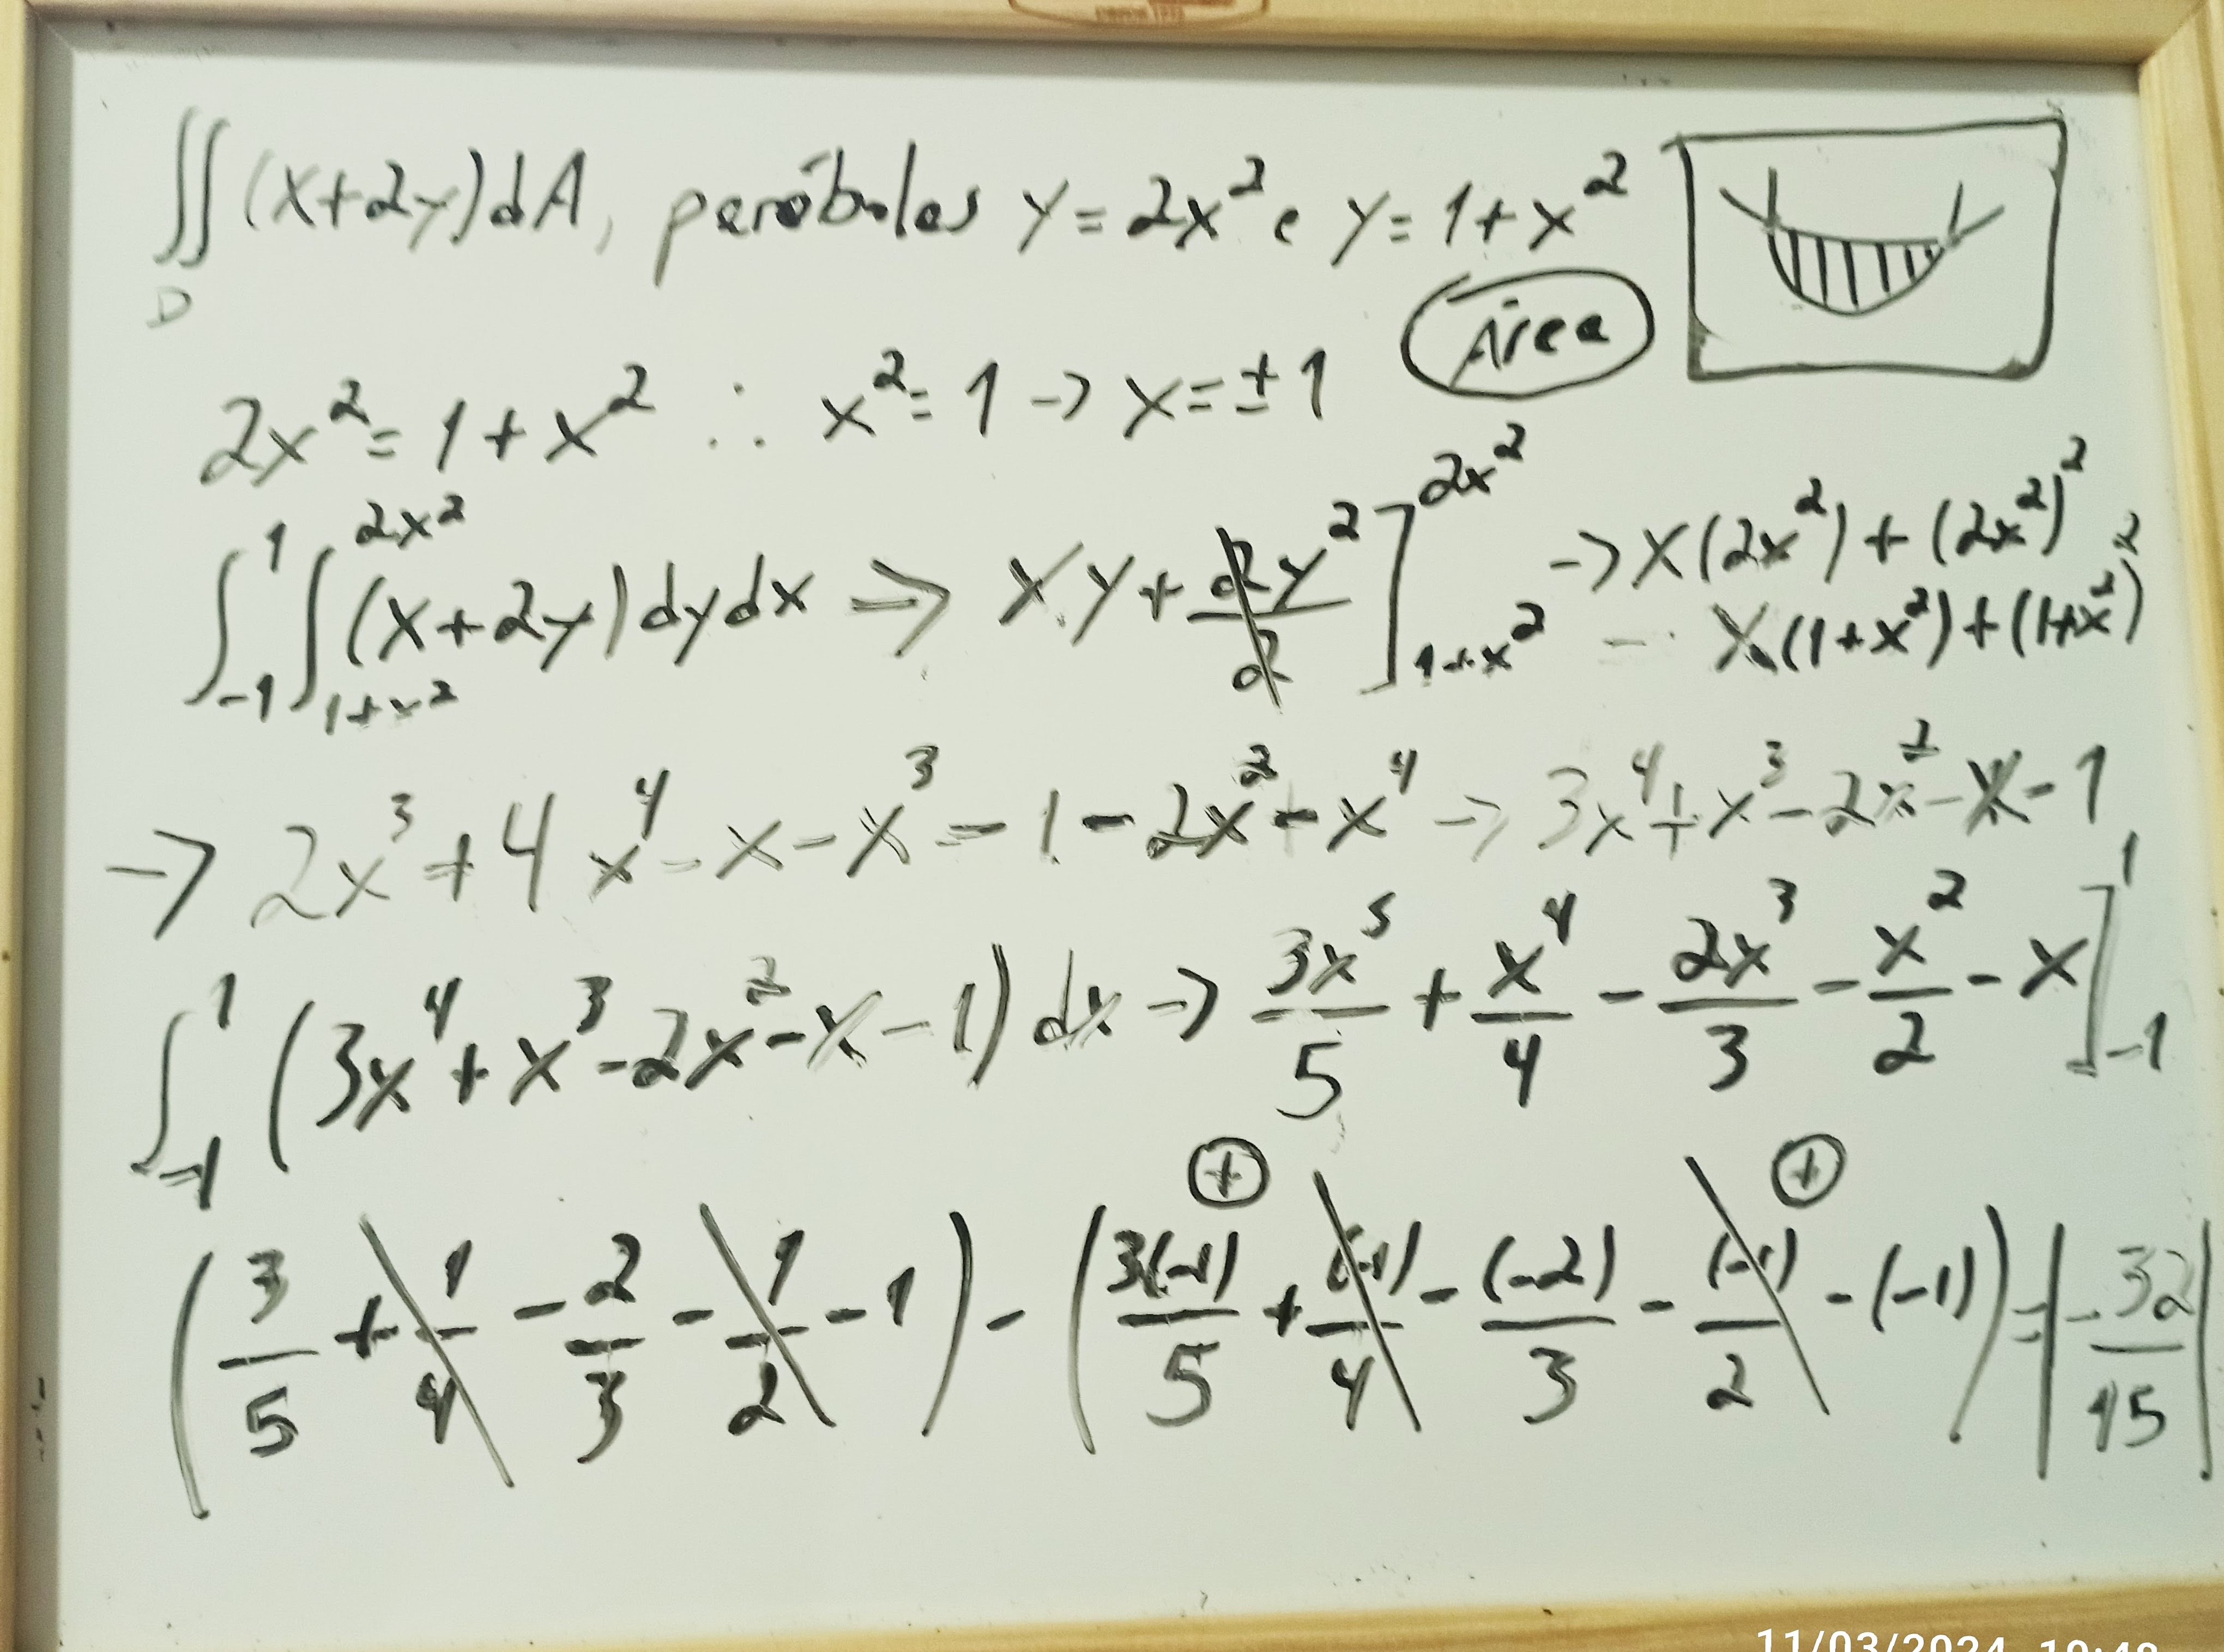 ∬_D (x+2y)dA, parábolas y=2x² e y=1+x²
Área
2x²=1+x² ∴ x²=1 -> x=±1
∫_{-1}^{1} ∫_{1+x²}^{2x²} (x+2y)dydx => xy+2y²/2 ]_{1+x²}^{2x²} -> x(2x²)+(2x²)²
- x(1+x²)+(1+x²)²
-> 2x³+4x⁴-x-x³-1-2x²-x⁴ -> 3x⁴+x³-2x²-x-1
∫_{-1}^{1} (3x⁴+x³-2x²-x-1)dx -> 3x⁵/5 + x⁴/4 - 2x³/3 - x²/2 - x ]_{-1}^{1}
⊕ ⊕
(3/5 + 1/4 - 2/3 - 1/2 - 1) - (3(-1)/5 + (-1)/4 - (-2)/3 - (-1)/2 - (-1)) = |-32/15|